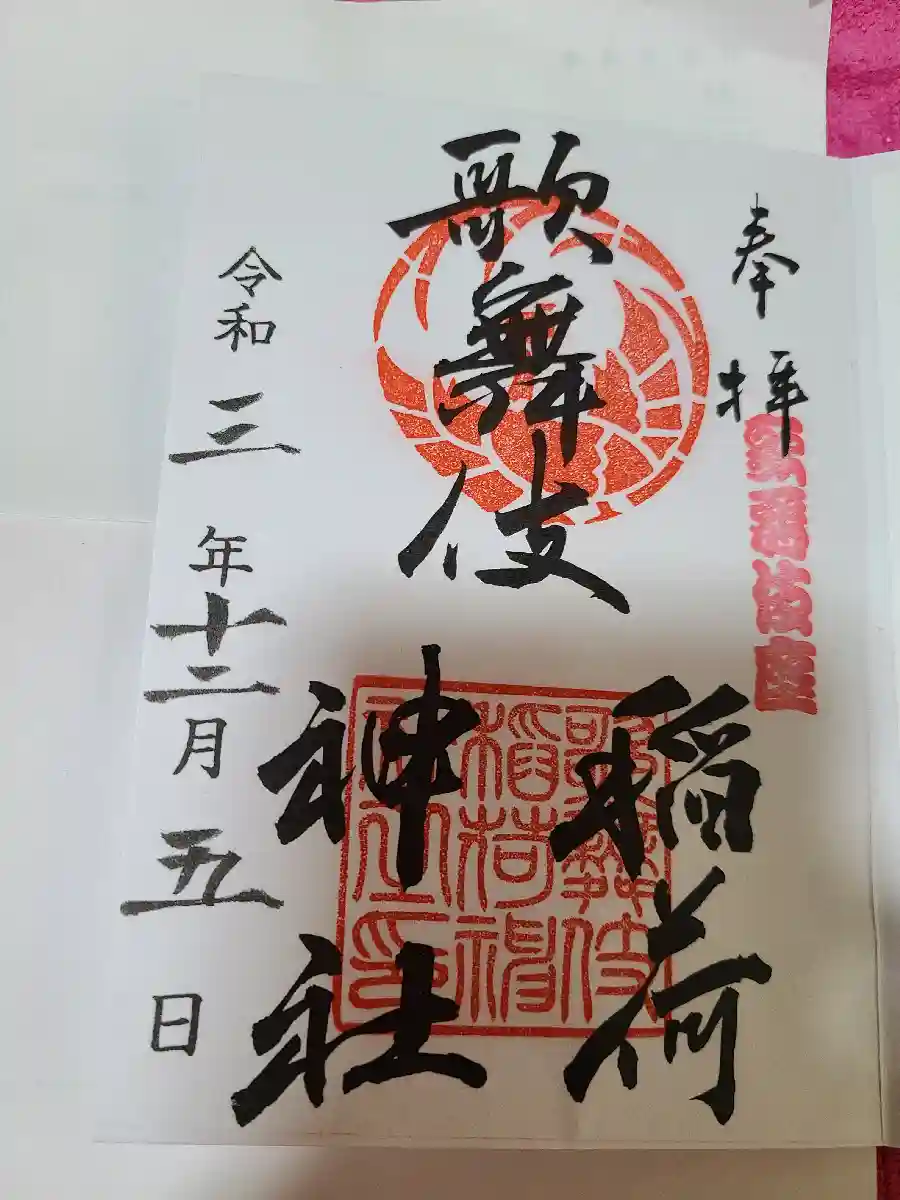 奉拝
歌舞伎座
歌舞伎
稲荷
神社
令和三年十二月五日